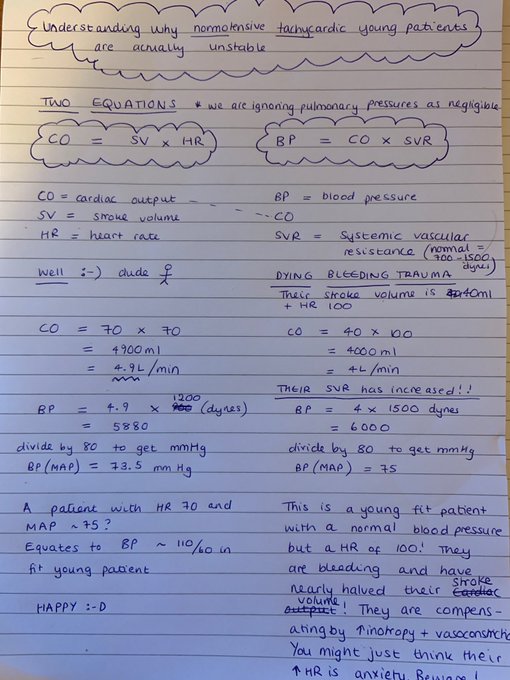 Understanding why normotensive tachycardic young patients
are actually unstable
TWO EQUATIONS * we are ignoring pulmonary pressures as negligible
CO = SV x HR
BP = CO x SVR
CO = cardiac output
SV = stroke volume
HR = heart rate
BP = blood pressure
CO
SVR = Systemic vascular
resistance (normal =
700-1500
dynes)
Well :-) dude
CO = 70 x 70
= 4900ml
= 4.9L/min
BP = 4.9 x 1200 (dynes)
= 5880
divide by 80 to get mmHg
BP (MAP) = 73.5 mm Hg
A patient with HR 70 and
MAP ~75?
Equates to BP ~ 110/60 in
fit young patient
HAPPY :-D
DYING BLEEDING TRAUMA
Their stroke volume is 40ml
+ HR 100
CO = 40 x 100
= 4000ml
= 4L/min
THEIR SVR has increased!!
BP = 4 x 1500 dynes
= 6000
divide by 80 to get mmHg
BP (MAP) = 75
This is a young fit patient
with a normal blood pressure
but a HR of 100! They
are bleeding and have
nearly halved their stroke
volume! They are compens-
ating by ↑inotropy + vasoconstricti
You might just think their
↑HR is anxiety. Beware!